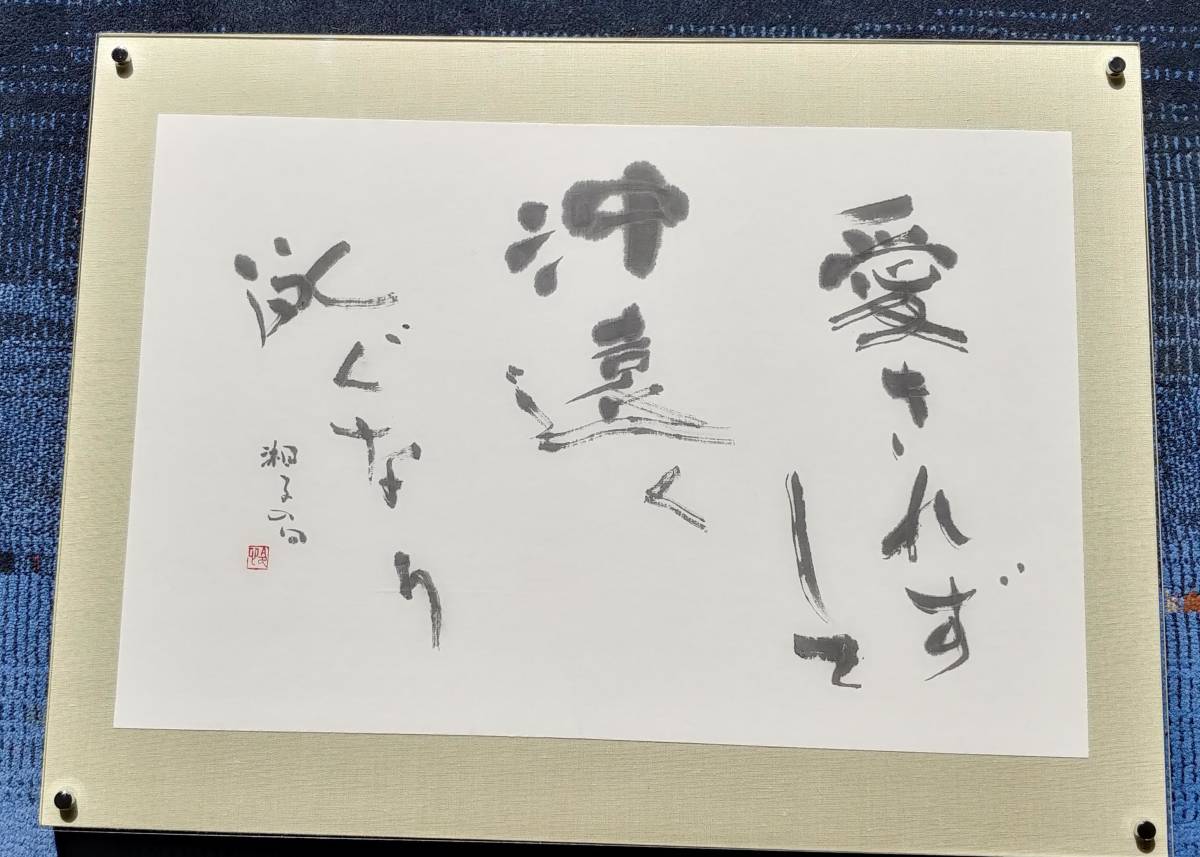 愛されずして
沖遠く
泳ぐなり
湘子の句